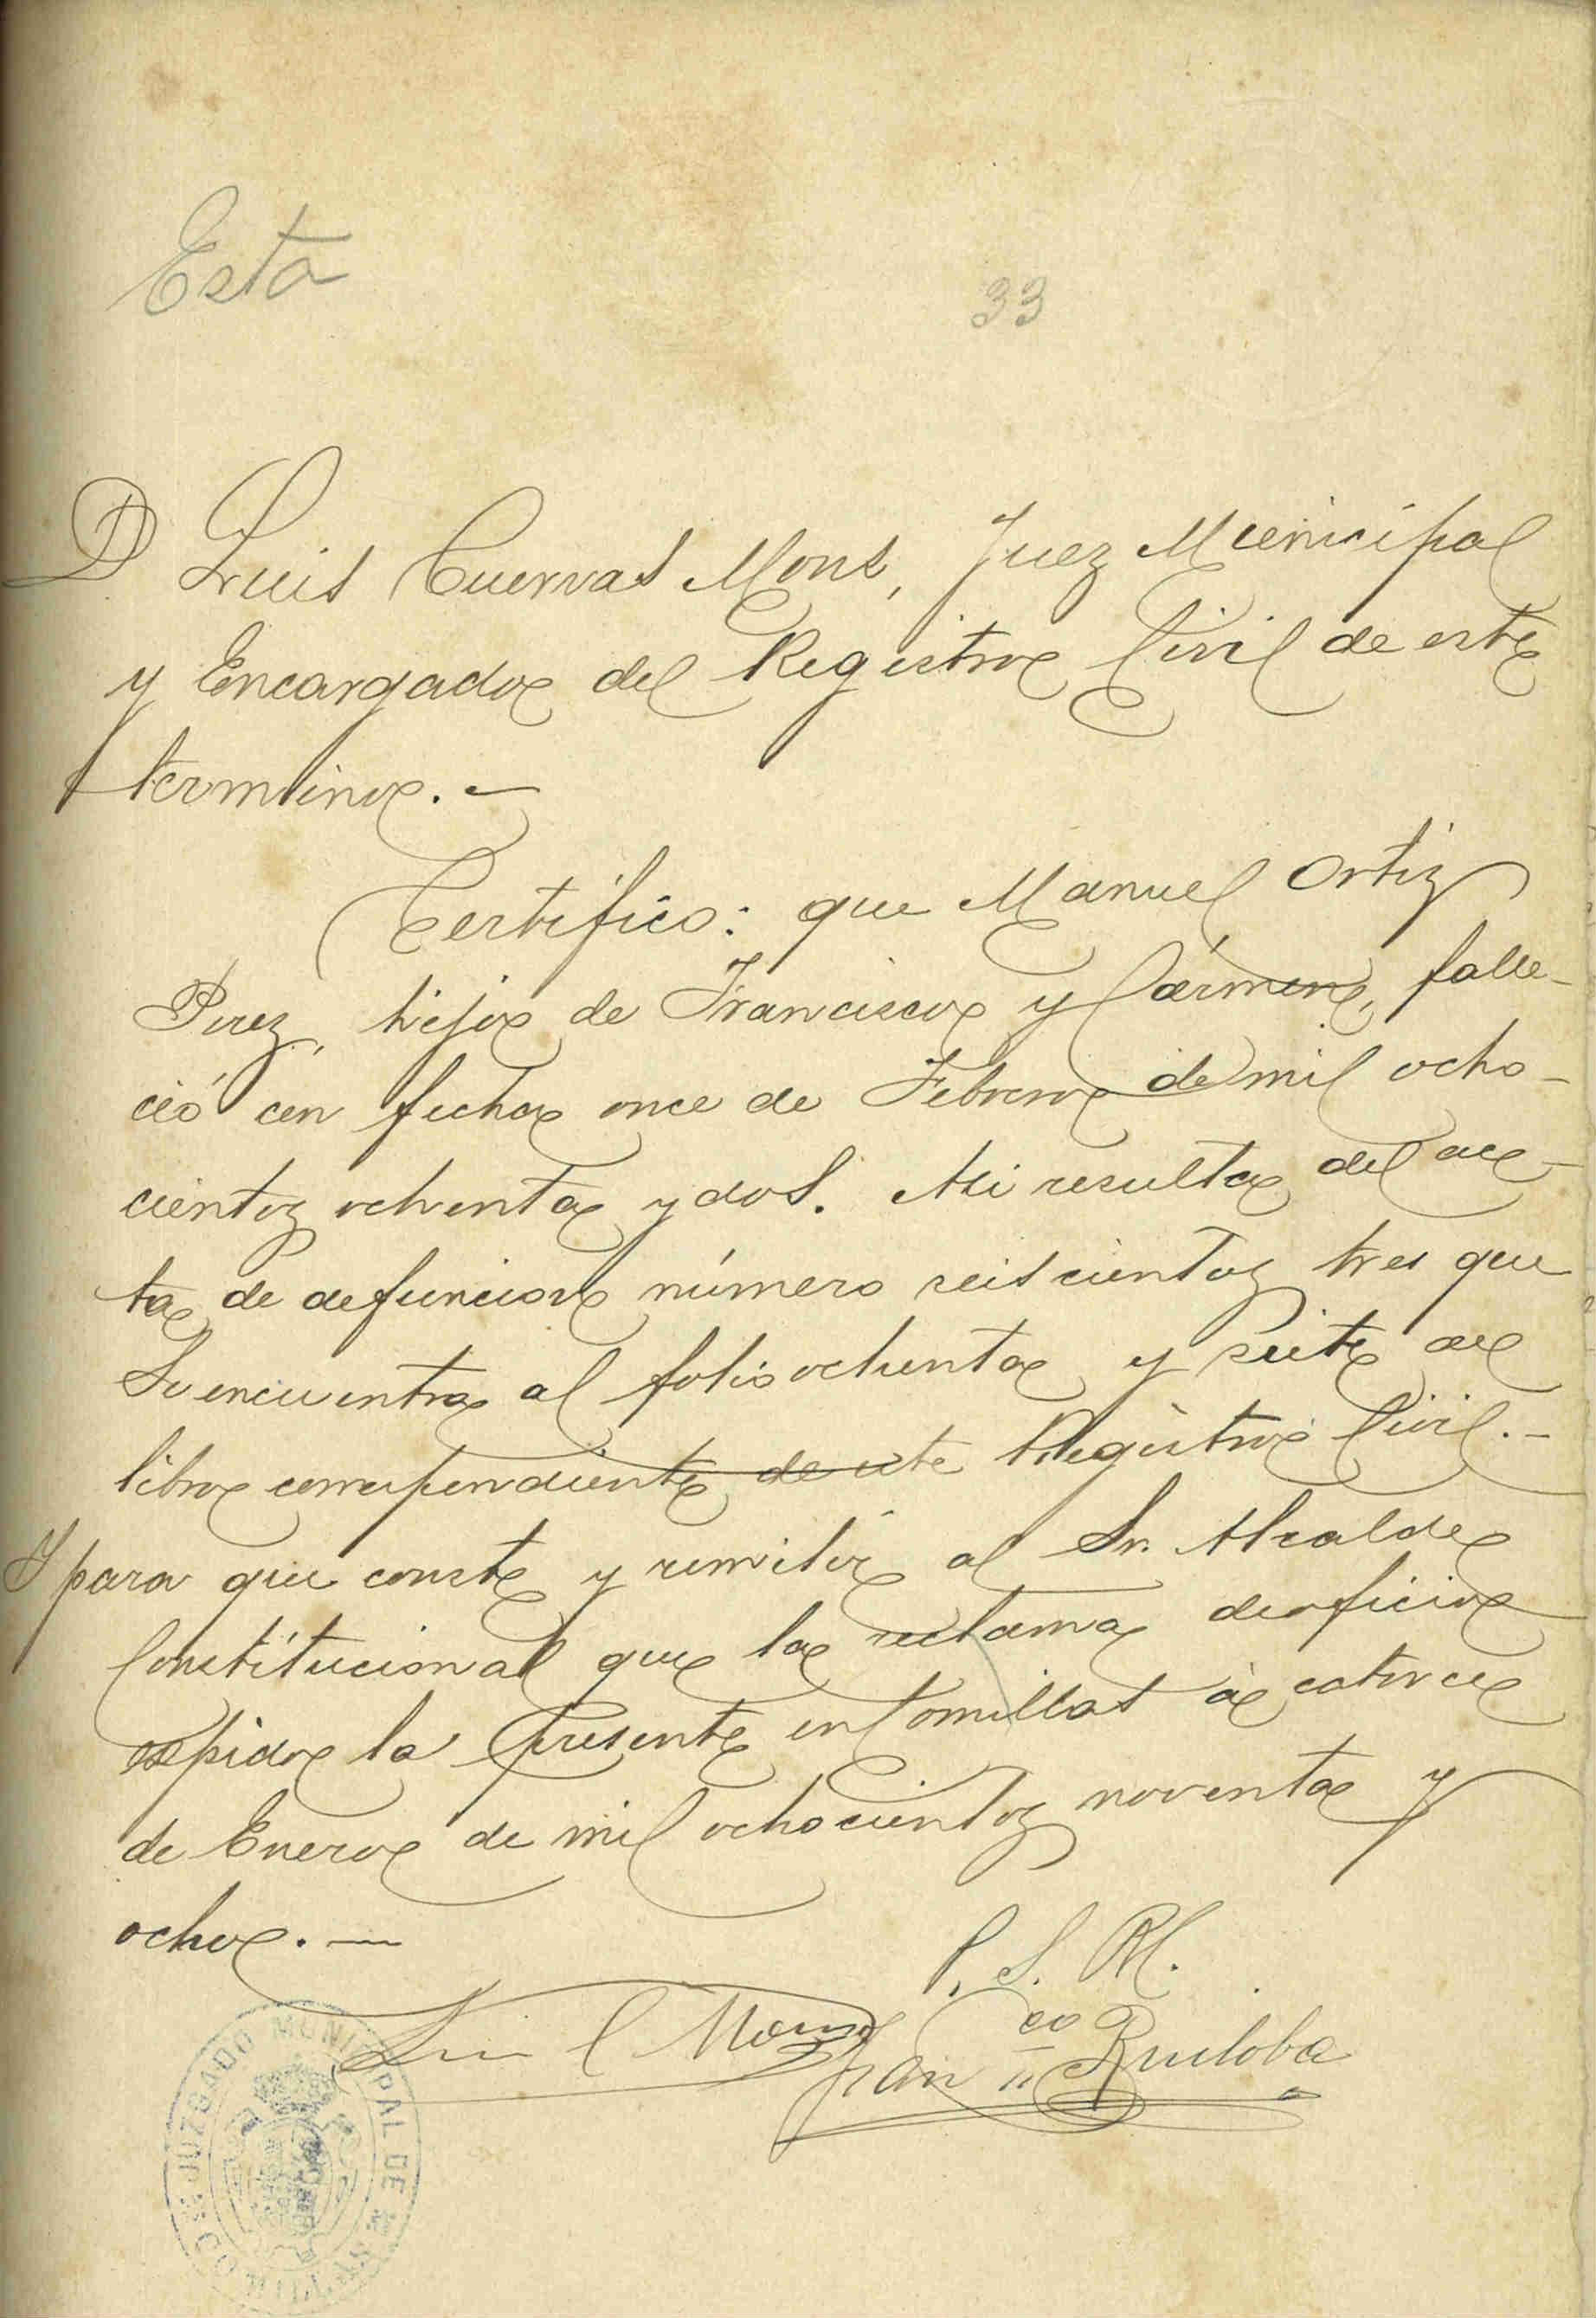 Esta
33
D. Luis Cuervas Mons, Juez Municipal
y Encargado del Registro Civil de este
termino.-
Certifico: que Manuel Ortiz
Perez, hijo de Francisco y Cármen, falle-
ció con fecha once de Febrero de mil ocho-
cientos ochenta y dos. Asi resulta del ac-
ta de defuncion número seiscientos tres que
Se encuentra al folio ochenta y siete del
libro correspondiente de este Registro Civil.-
Y para que conste y remitir al Sr. Alcalde
Constitucional que la reclama de oficio
espido la presente en Comillas á catorce
de Enero de mil ochocientos noventa y
ocho.-
P. S. M.
Luis C Mons
Fran.co Ruiloba
JUZGADO MUNICIPAL DE COMILLAS